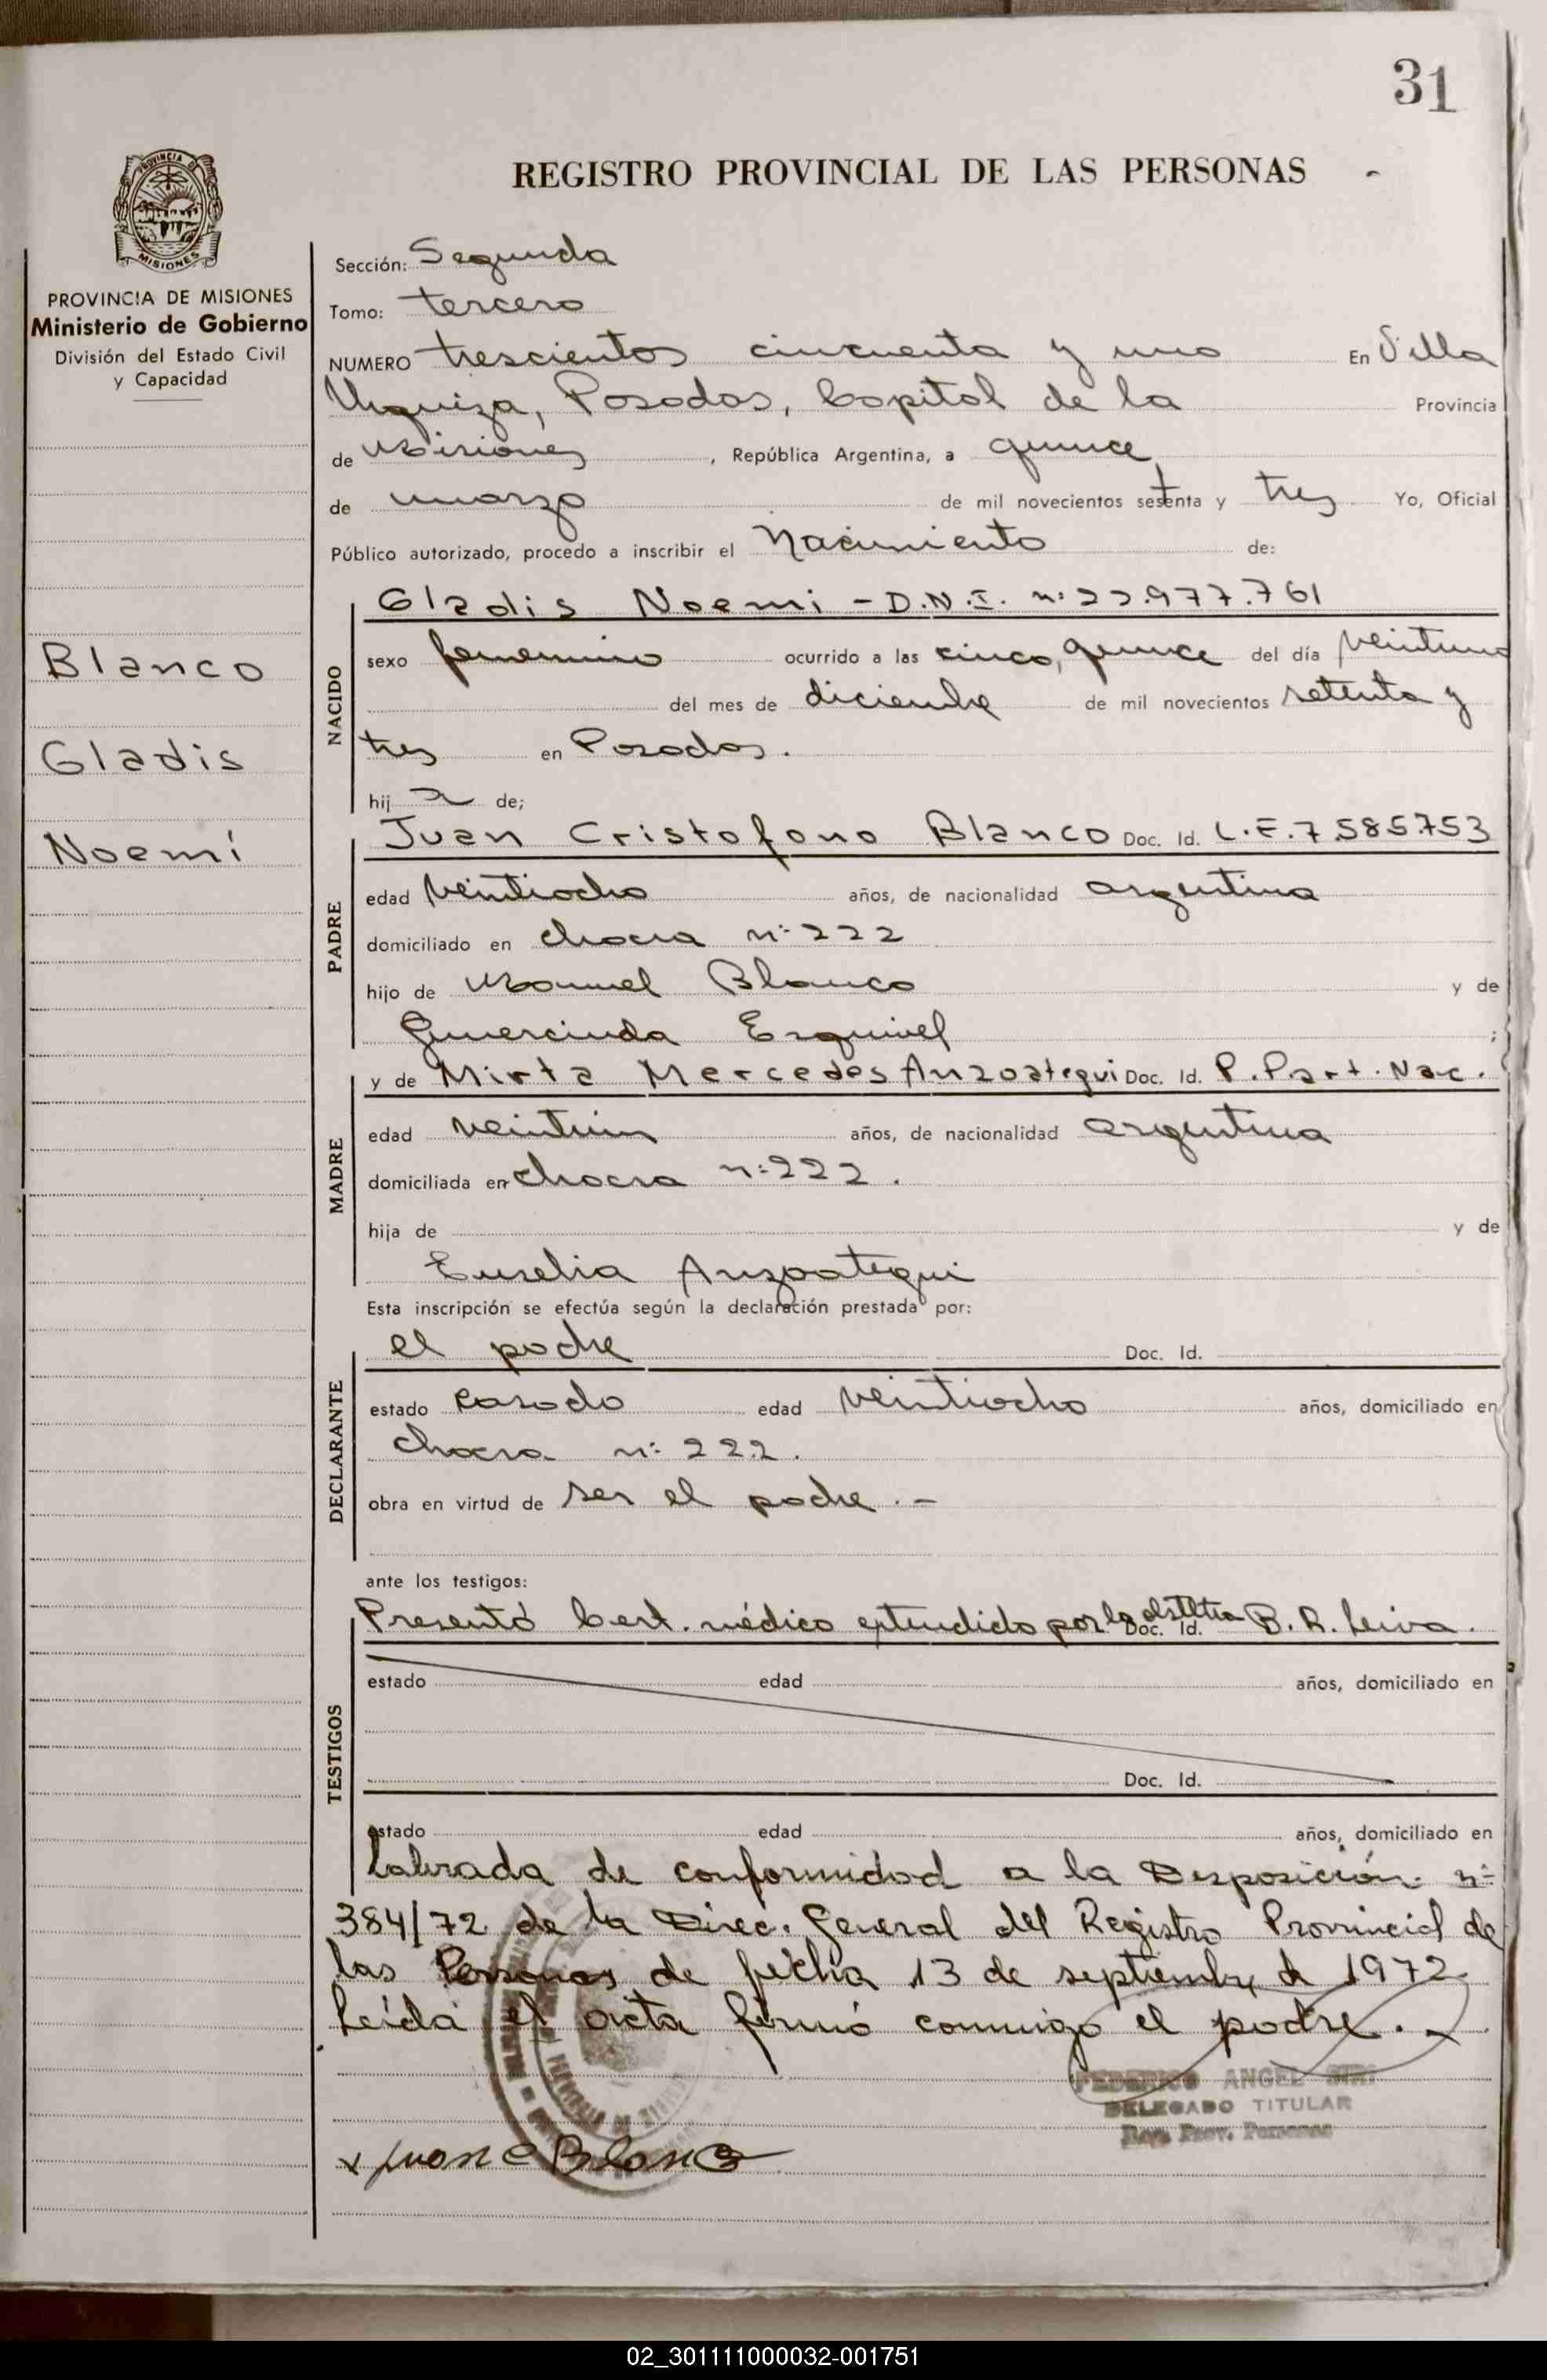 31
REGISTRO PROVINCIAL DE LAS PERSONAS
PROVINCIA DE
MISIONES
PROVINCIA DE MISIONES
Ministerio de Gobierno
División del Estado Civil
y Capacidad
Blanco
Gladis
Noemí
Sección: Segunda
Tomo: tercero
NUMERO trescientos cincuenta y uno En Villa
Urquiza, Posadas, Capital de la Provincia
de Misiones, República Argentina, a quince
de marzo de mil novecientos setenta y tres Yo, Oficial
Público autorizado, procedo a inscribir el Nacimiento de:
NACIDO
Gladis Noemi - D.N.I. n: 22.977.761
sexo femenino ocurrido a las cinco, quince del día veintiuno
del mes de diciembre de mil novecientos setenta y
tres en Posadas.
hij a de;
PADRE
Juan Cristofono Blanco Doc. Id. L.E. 7.585.753
edad veintiocho años, de nacionalidad argentina
domiciliado en chacra n: 222
hijo de Manuel Blanco y de
Gumercinda Esquivel ;
MADRE
y de Mirta Mercedes Anzoategui Doc. Id. P. Part. Nac.
edad años, de nacionalidad argentina
domiciliada en chacra n: 222.
hija de y de
Eusebia Anzoategui
Esta inscripción se efectúa según la declaración prestada por:
DECLARANTE
el padre Doc. Id.
estado casado edad veintiocho años, domiciliado en
chacra n: 222.
obra en virtud de ser el padre. -
ante los testigos:
TESTIGOS
Presentó Cert. médico extendido por la Doc. Id. B. R. Leiva.
estado edad años, domiciliado en
Doc. Id.
estado edad años, domiciliado en
Labrada de conformidad a la Disposición n:
384/72 de la Direc. General del Registro Provincial de
las Personas de fecha 13 de septiembre de 1972
Leída el acta firmó conmigo el padre. -
FEDERICO ANGEL
DELEGADO TITULAR
Reg. Prov. Personas
x Juan C Blanco
02_301111000032-001751